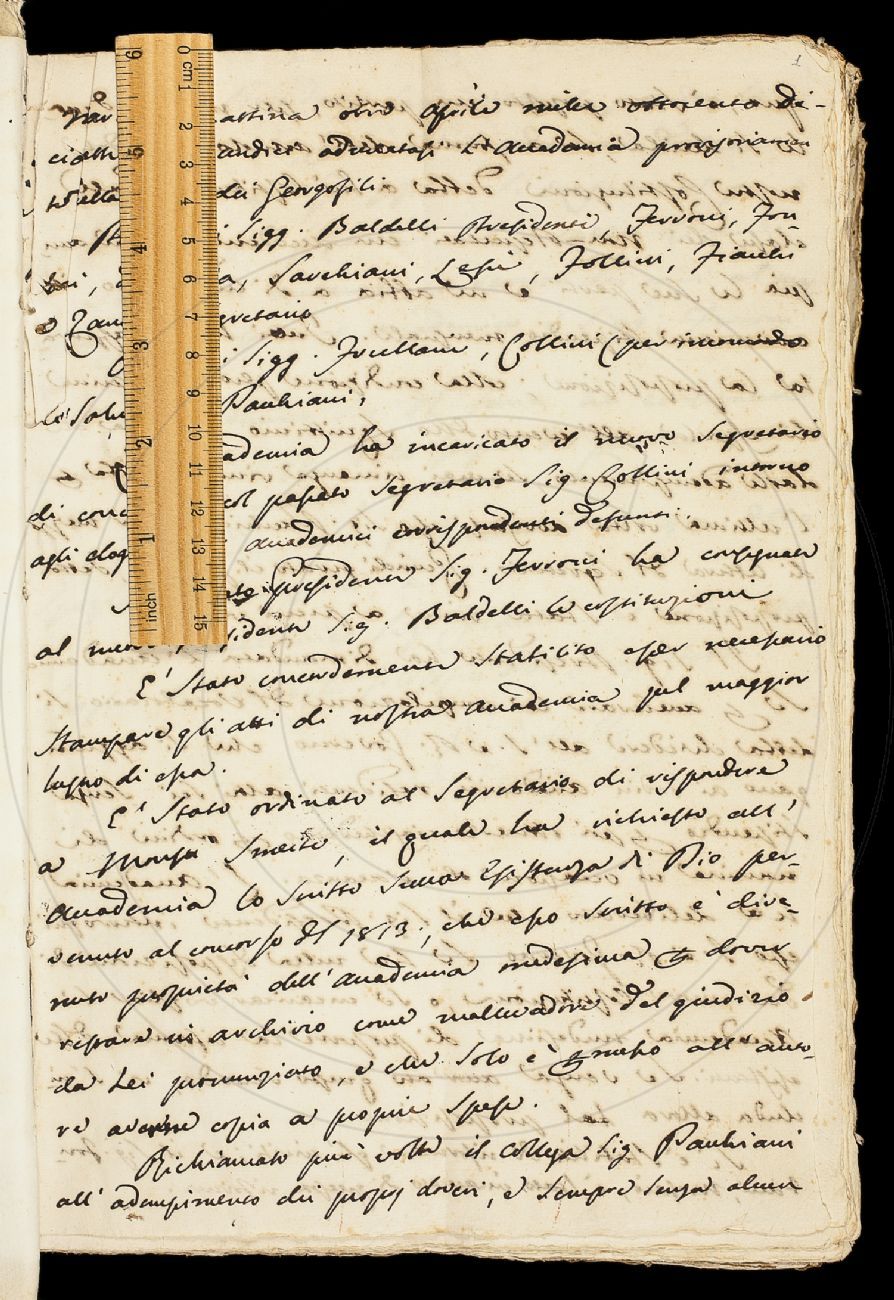 1
attina otto Aprile mille ottocento di-
ciotto undici adunatasi l'Accademia provisoriamen
te dei Georgofili
Sigg. Baldelli Presidente, Ferroni,
Sarchiani, Lessi, Follini, Fiachi
e segretario
Sigg. Fucellani, Collini (per
lo Pauchiani,
ademia ha incaricato il nuovo Segretario
di col passato Segretario Sig. Collini intorno
agli elog accademici corrispondenti defunti.
presidente Sig. Ferroni ha consegnato
al nuovo sidente Sig. Baldelli le costituzioni
E' stato concordemente stabilito esser necessario
stampare gli atti di nostra accademia pel maggior
lustro di essa.
E' stato ordinato al Segretario di rispondere
a il quale ha richiesto all'
Accademia lo scritto sulla Esistenza di Dio per-
venuto al concorso del 1813, che esso scritto è dive-
nuto proprietà dell'Accademia medesima e dover
restare in archivio come mallevadore del giudizio
da Lei pronunziato, e che solo è messo all'auto-
re averne copia a proprie spese.
Richiamato più volte il collega Sig. Pauchiani
all'adempimento dei proprj doveri, e sempre senza alcun
0 cm 1 2 3 4 5 6 7 8 9 10 11 12 13 14 15
6 5 4 3 2 1 inch